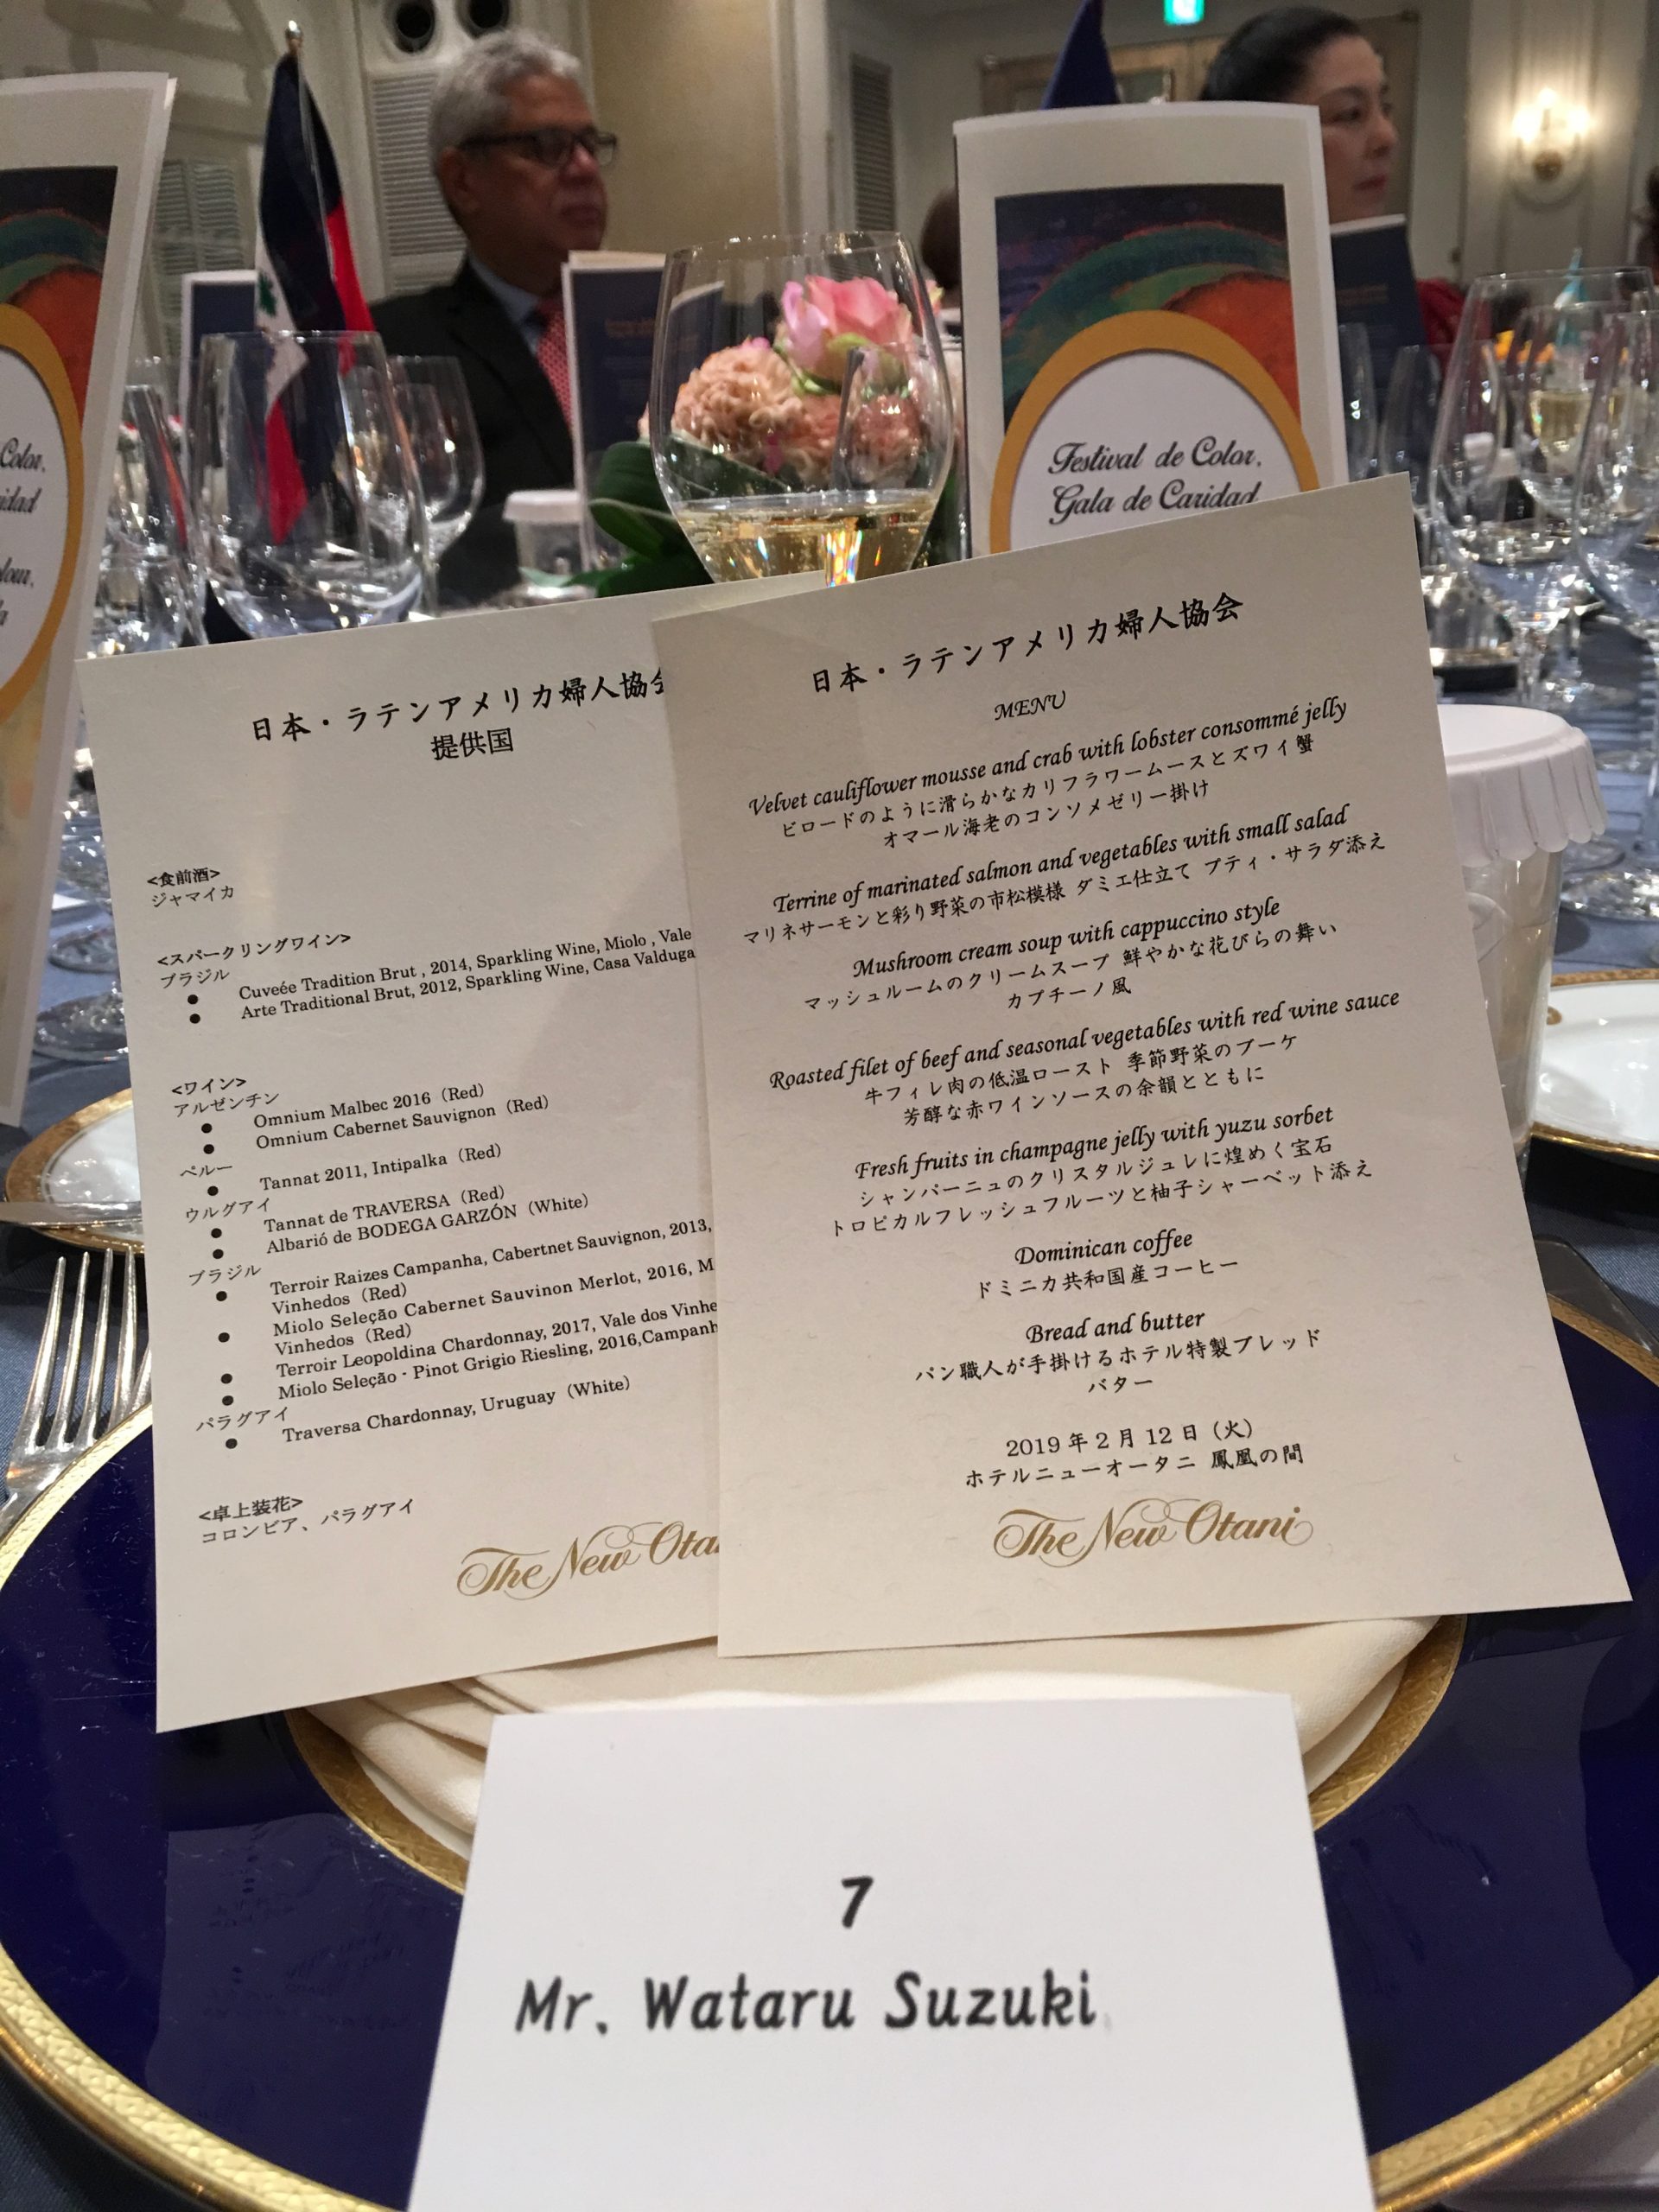 Color,
Festival de Color,
Gala de Caridad
日本・ラテンアメリカ婦人協会
提供国
<食前酒>
ジャマイカ
<スパークリングワイン>
ブラジル
● Cuveée Tradition Brut , 2014, Sparkling Wine, Miolo , Vale
● Arte Traditional Brut, 2012, Sparkling Wine, Casa Valduga
<ワイン>
アルゼンチン
● Omnium Malbec 2016（Red）
● Omnium Cabernet Sauvignon（Red）
ペルー
● Tannat 2011, Intipalka（Red）
ウルグアイ
● Tannat de TRAVERSA（Red）
● Albarió de BODEGA GARZÓN（White）
ブラジル
● Terroir Raizes Campanha, Cabertnet Sauvignon, 2013,
Vinhedos（Red）
● Miolo Seleção Cabernet Sauvinon Merlot, 2016, M
Vinhedos（Red）
● Terroir Leopoldina Chardonnay, 2017, Vale dos Vinhe
● Miolo Seleção - Pinot Grigio Riesling, 2016,Campanh
パラグアイ
● Traversa Chardonnay, Uruguay（White）
<卓上装花>
コロンビア、パラグアイ
The New Ota
日本・ラテンアメリカ婦人協会
MENU
Velvet cauliflower mousse and crab with lobster consommé jelly
ビロードのように滑らかなカリフラワームースとズワイ蟹
オマール海老のコンソメゼリー掛け
Terrine of marinated salmon and vegetables with small salad
マリネサーモンと彩り野菜の市松模様 ダミエ仕立て プティ・サラダ添え
Mushroom cream soup with cappuccino style
マッシュルームのクリームスープ 鮮やかな花びらの舞い
カプチーノ風
Roasted filet of beef and seasonal vegetables with red wine sauce
牛フィレ肉の低温ロースト 季節野菜のブーケ
芳醇な赤ワインソースの余韻とともに
Fresh fruits in champagne jelly with yuzu sorbet
シャンパーニュのクリスタルジュレに煌めく宝石
トロピカルフレッシュフルーツと柚子シャーベット添え
Dominican coffee
ドミニカ共和国産コーヒー
Bread and butter
パン職人が手掛けるホテル特製ブレッド
バター
2019 年 2 月 12 日（火）
ホテルニューオータニ 鳳凰の間
The New Otani
7
Mr. Wataru Suzuki